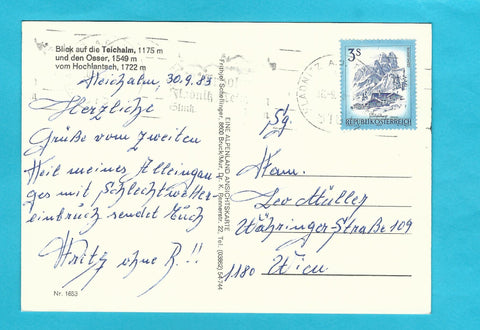 Blick auf die Teichalm, 1175 m
und den Osser, 1549 m
vom Hochlantsch, 1722 m
Teichalm, 30.9.83
Herzliche
Grüße vom zweiten
Teil meines Alleingan
ges mit Schlechtwetter-
einbruch sendet Euch
Fritz ohne R.!!
Nr. 1653
EINE ALPENLAND ANSICHTSKARTE
Frithjof Schleflinger, 8600 Bruck/Mur, Dr. K. Rennerstr. 22, Tel. (03862) 54-744
3 S
REPUBLIK ÖSTERREICH
Sg.
Fam.
Leo Müller
Währinger Straße 109
1180 Wien